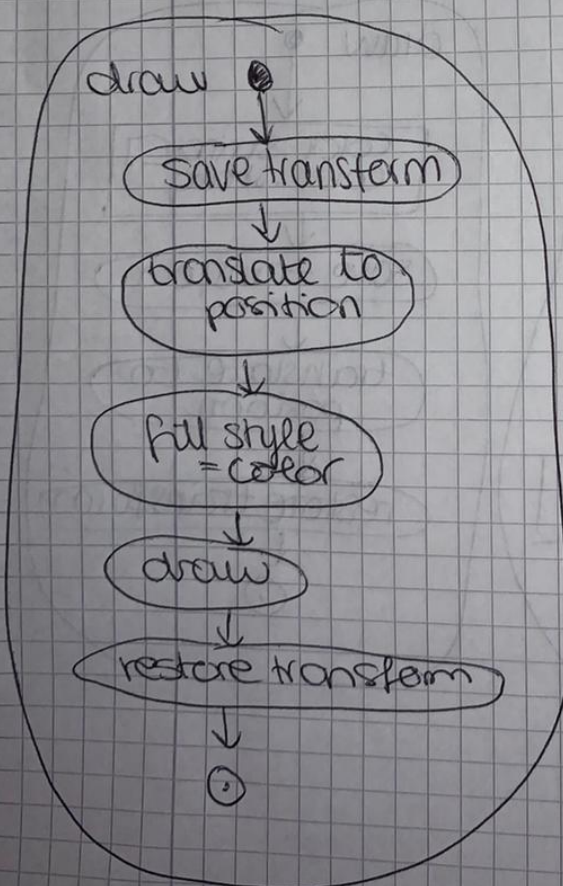 draw
save transform
translate to
position
fill style
= color
draw
restore transform